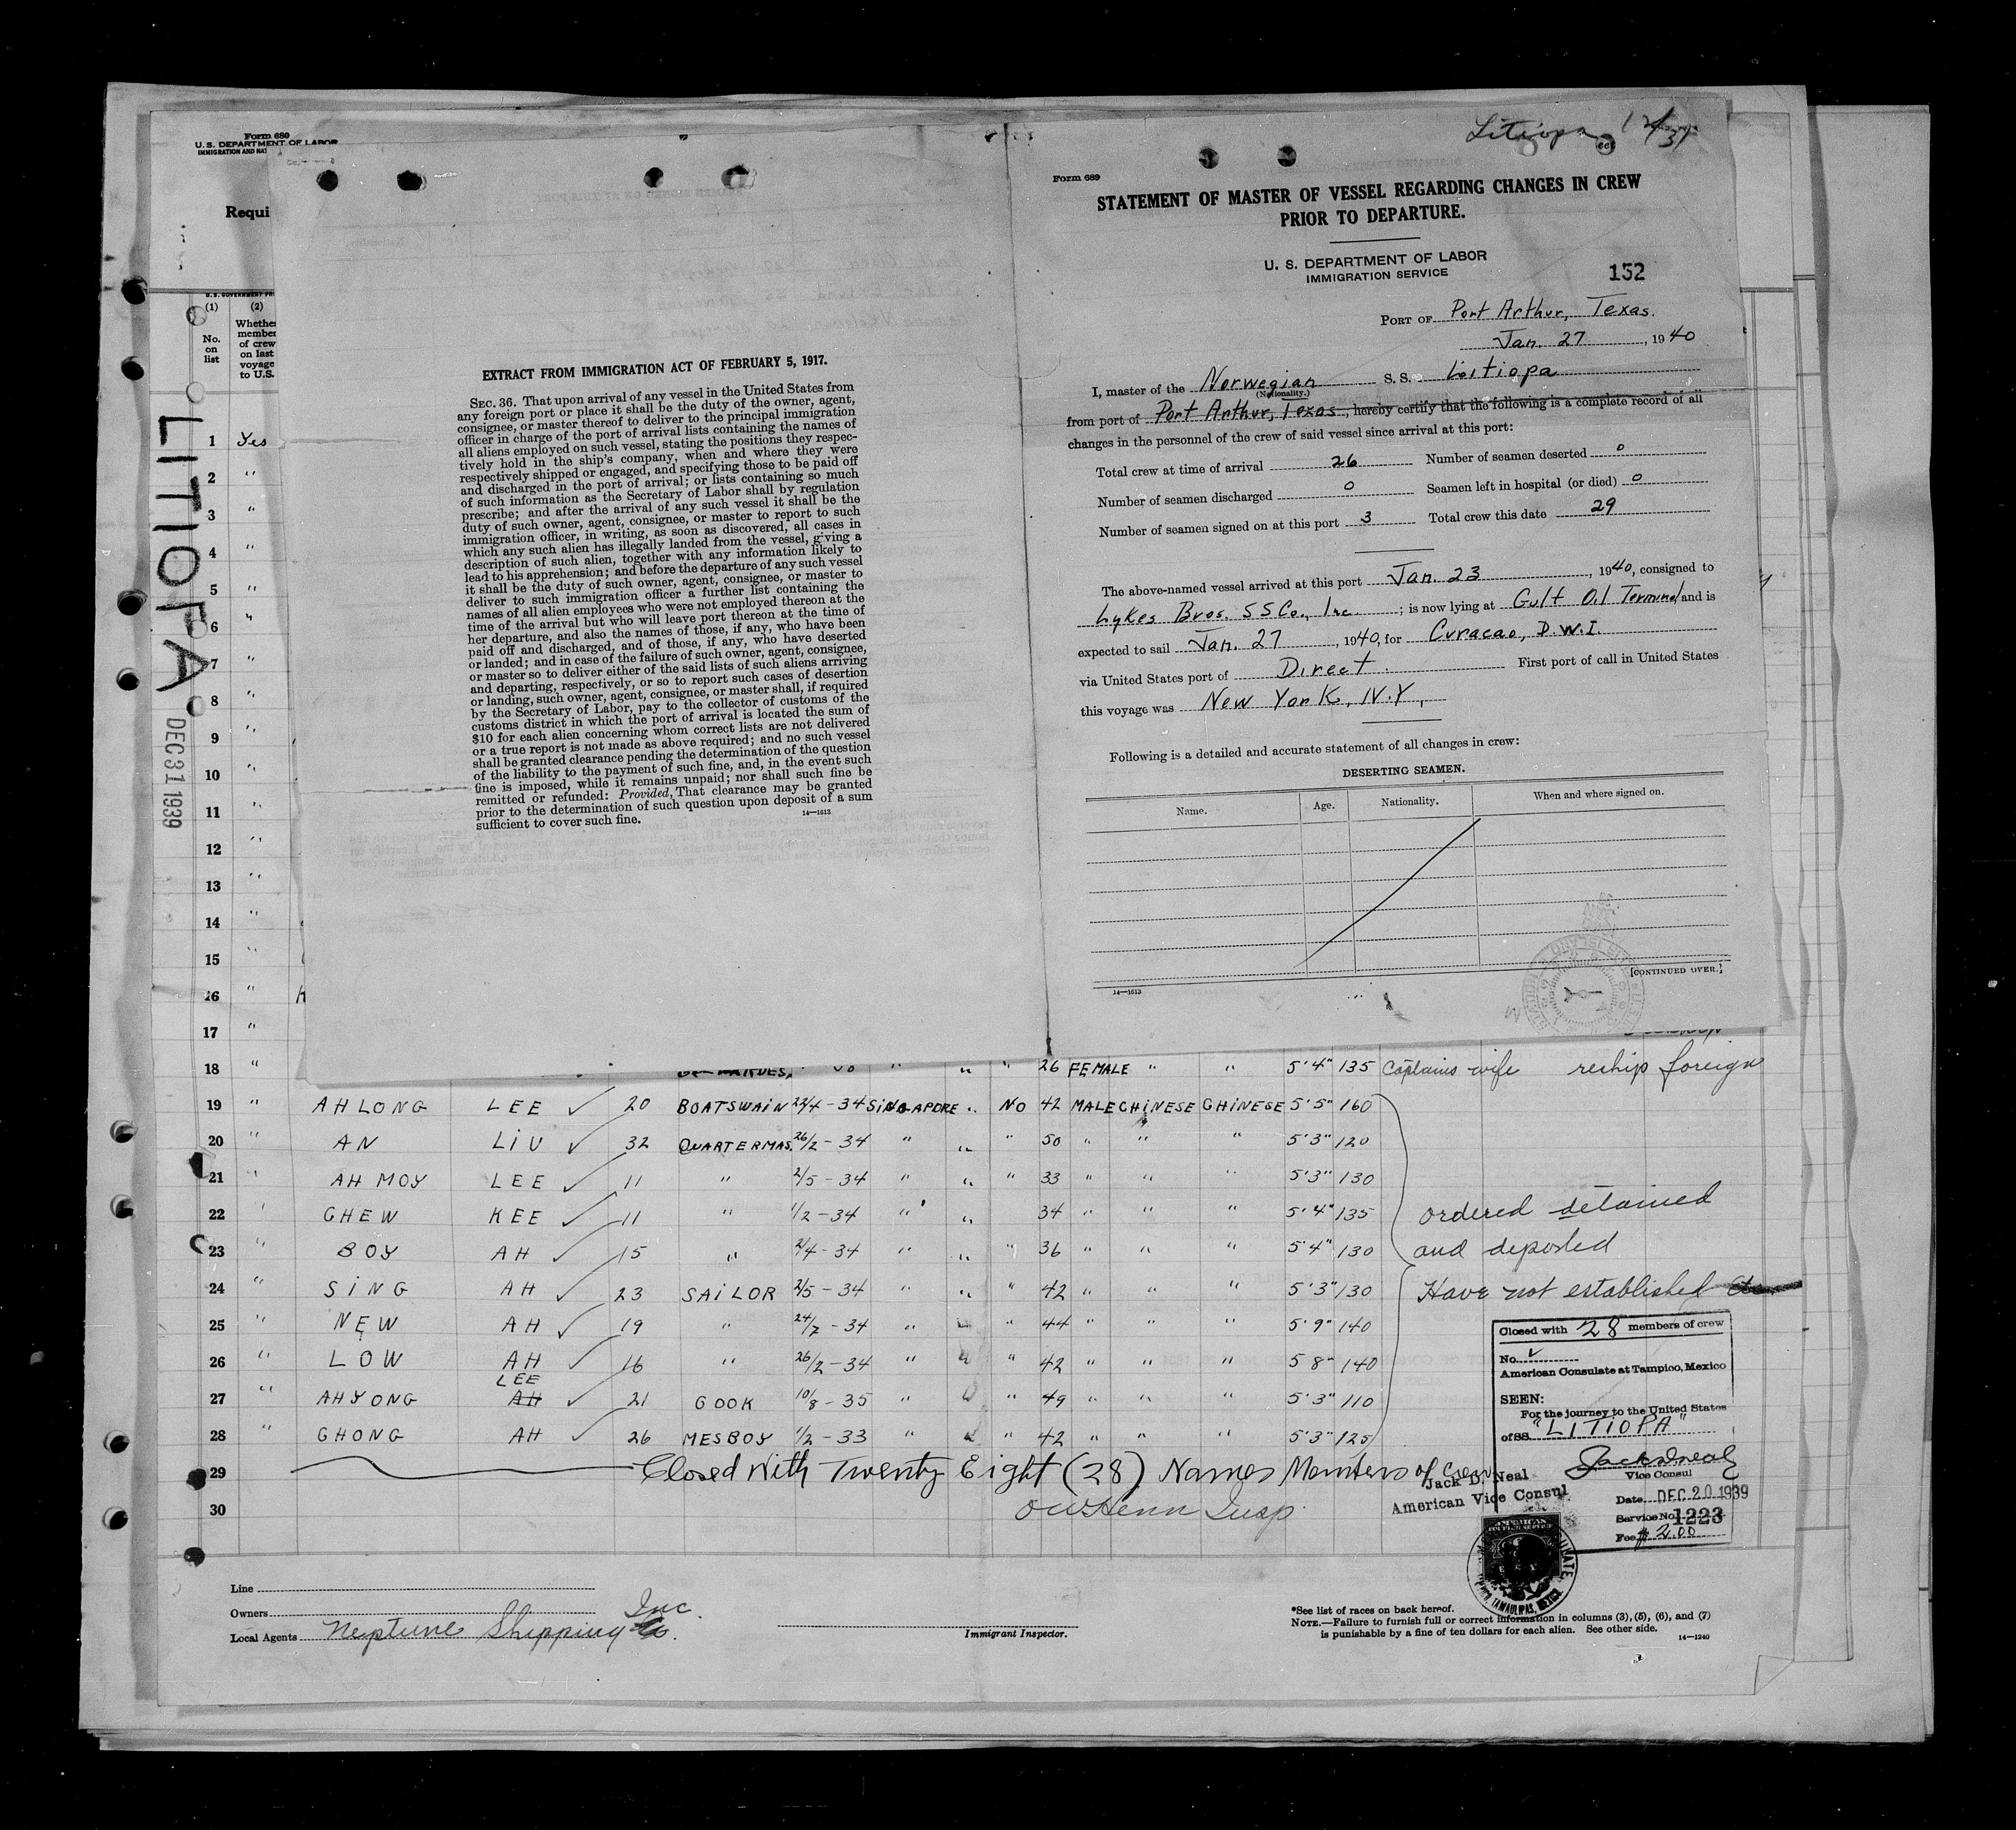 Form 680
U. S. DEPARTMENT OF LABOR
IMMIGRATION AND NAT
Requi
U. S. GOVERNMENT PR
(1) (2)
No. on list
Whether member of crew on last voyage to U.S.
LITIOPA
DEC 31 1939
1 Yes
2 "
3 "
4 "
5 "
6 "
7 "
8 "
9 "
10 "
11 "
12 "
13 "
14 "
15 "
16 "
17 "
EXTRACT FROM IMMIGRATION ACT OF FEBRUARY 5, 1917.
SEC. 36. That upon arrival of any vessel in the United States from
any foreign port or place it shall be the duty of the owner, agent,
consignee, or master thereof to deliver to the principal immigration
officer in charge of the port of arrival lists containing the names of
all aliens employed on such vessel, stating the positions they respec-
tively hold in the ship's company, when and where they were
respectively shipped or engaged, and specifying those to be paid off
and discharged in the port of arrival; or lists containing so much
of such information as the Secretary of Labor shall by regulation
prescribe; and after the arrival of any such vessel it shall be the
duty of such owner, agent, consignee, or master to report to such
immigration officer, in writing, as soon as discovered, all cases in
which any such alien has illegally landed from the vessel, giving a
description of such alien, together with any information likely to
lead to his apprehension; and before the departure of any such vessel
it shall be the duty of such owner, agent, consignee, or master to
deliver to such immigration officer a further list containing the
names of all alien employees who were not employed thereon at the
time of the arrival but who will leave port thereon at the time of
her departure, and also the names of those, if any, who have been
paid off and discharged, and of those, if any, who have deserted
or landed; and in case of the failure of such owner, agent, consignee,
or master so to deliver either of the said lists of such aliens arriving
and departing, respectively, or so to report such cases of desertion
or landing, such owner, agent, consignee, or master shall, if required
by the Secretary of Labor, pay to the collector of customs of the
customs district in which the port of arrival is located the sum of
$10 for each alien concerning whom correct lists are not delivered
or a true report is not made as above required; and no such vessel
shall be granted clearance pending the determination of the question
of the liability to the payment of such fine, and, in the event such
fine is imposed, while it remains unpaid; nor shall such fine be
remitted or refunded: Provided, That clearance may be granted
prior to the determination of such question upon deposit of a sum
sufficient to cover such fine.
14—1613
Litiopa 12/31
Form 689
STATEMENT OF MASTER OF VESSEL REGARDING CHANGES IN CREW
PRIOR TO DEPARTURE.
U. S. DEPARTMENT OF LABOR
IMMIGRATION SERVICE
152
PORT OF Port Arthur, Texas.
Jan. 27, 1940
I, master of the Norwegian S. S. Litiopa
(Nationality.)
from port of Port Arthur, Texas, hereby certify that the following is a complete record of all
changes in the personnel of the crew of said vessel since arrival at this port:
Total crew at time of arrival 26 Number of seamen deserted 0
Number of seamen discharged 0 Seamen left in hospital (or died) 0
Number of seamen signed on at this port 3 Total crew this date 29
The above-named vessel arrived at this port Jan. 23, 1940, consigned to
Lykes Bros. SS Co., Inc. ; is now lying at Gulf Oil Terminal and is
expected to sail Jan. 27, 1940, for Curacao, D.W.I.
via United States port of Direct. First port of call in United States
this voyage was New York, N.Y.,
Following is a detailed and accurate statement of all changes in crew:
DESERTING SEAMEN.
Name. Age. Nationality. When and where signed on.
[CONTINUED OVER.]
14—1613
18 " " " 26 FEMALE " " 5'4" 135 Captains wife reship foreign
19 " AH LONG LEE ✓ 20 BOATSWAIN 22/4-34 SINGAPORE " NO 42 MALE CHINESE CHINESE 5'5" 160
20 " AN LIU ✓ 32 QUARTERMAS. 26/2-34 " " " 50 " " " 5'3" 120
21 " AH MOY LEE ✓ 11 " 2/5-34 " " " 33 " " " 5'3" 130
22 " CHEW KEE ✓ 11 " 1/2-34 " " 34 " " " 5'4" 135 ordered detained
23 " BOY AH ✓ 15 " 2/4-34 " " " 36 " " " 5'4" 130 and deported
24 " SING AH ✓ 23 SAILOR 2/5-34 " " " 42 " " " 5'3" 130 Have not established
25 " NEW AH ✓ 19 " 24/7-34 " " " 44 " " " 5'9" 140
26 " LOW AH ✓ 16 " 26/2-34 " " " 42 " " " 5 8" 140
27 " AH YONG AH LEE ✓ 21 COOK 10/8-35 " " " 49 " " " 5'3" 110
28 " CHONG AH ✓ 26 MESBOY 1/2-33 " " " 42 " " " 5'3" 125
29 Closed With Twenty Eight (28) Names Members of Crew
30
Insp.
Closed with 28 members of crew
No. ✓
American Consulate at Tampico, Mexico
SEEN:
For the journey to the United States
of SS. "LITIOPA"
Jack D Neal
Vice Consul
Jack D. Neal
American Vice Consul
Date DEC 20 1939
Service No. 1223
Fee $ 2.00
TAMAULIPAS, MEXICO
Line
Owners
Local Agents Neptune Shipping Co. Inc.
Immigrant Inspector.
*See list of races on back hereof.
NOTE.—Failure to furnish full or correct information in columns (3), (5), (6), and (7)
is punishable by a fine of ten dollars for each alien. See other side.
14—1240